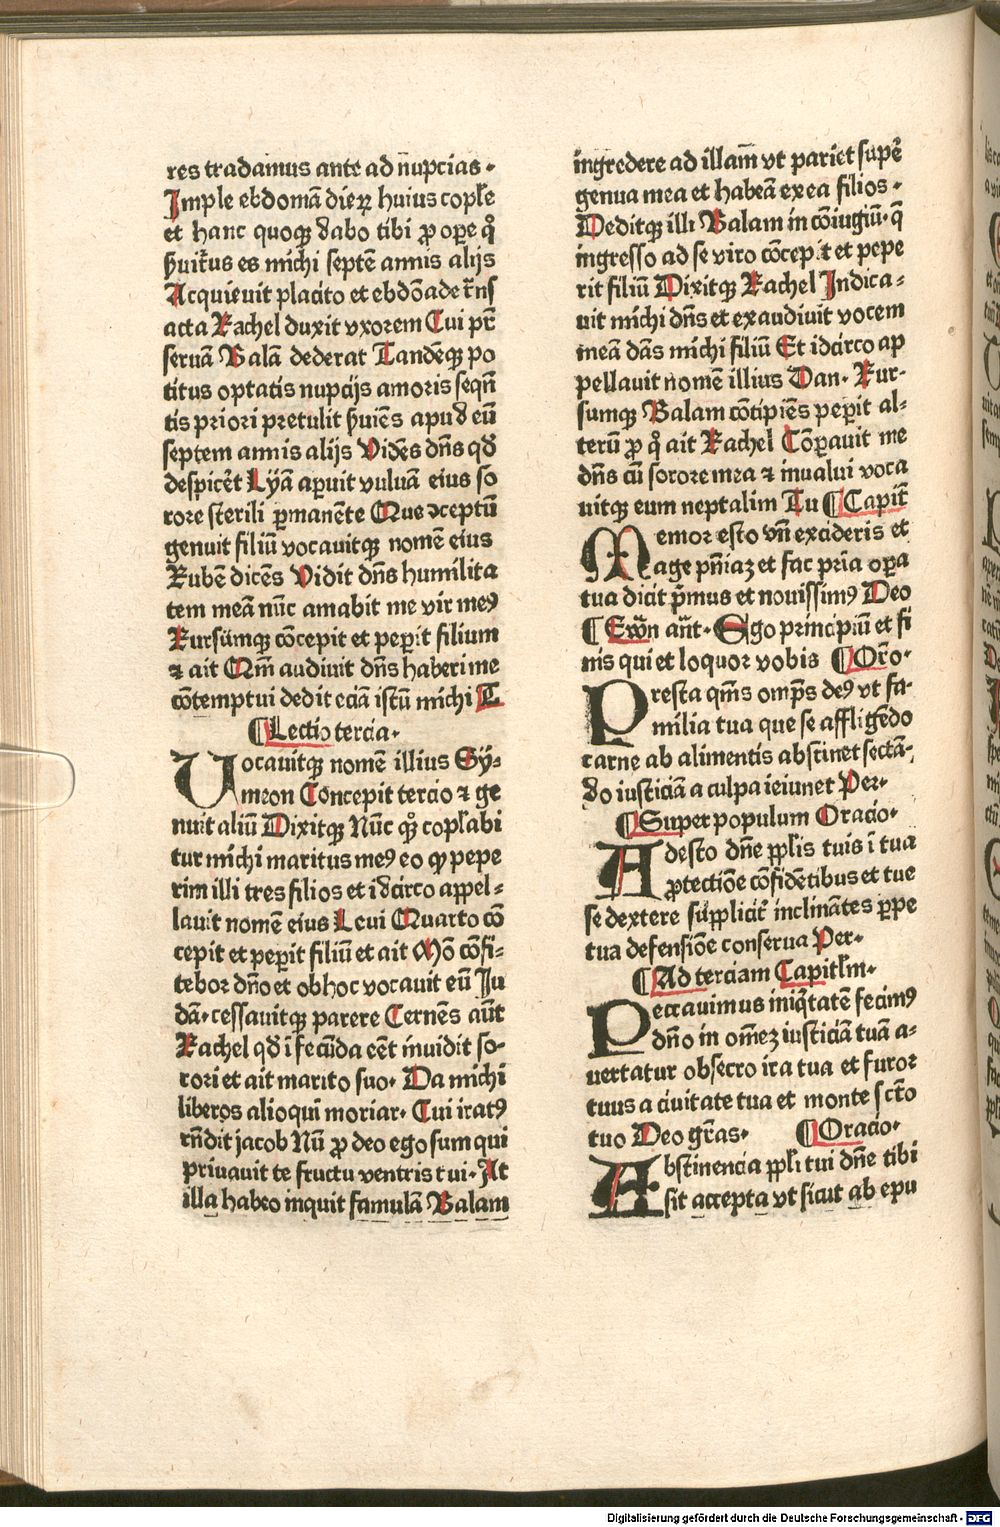 res tradamus ante ad nupcias·
Imple ebdomā dieꝝ huius cople
et hanc quoqꝫ dabo tibi ꝓ oꝑe qͦ
ẜuit᷒us es michi septē annis alijs
Acquieuit placito et ebdōade t̄nſ
acta Rachel duxit vxorem Cui pr̄
seruā Balā dederat Tandēqꝫ po
titus optatis nupcijs amoris seqn̄
tis priori pretulit ẜuiēs apud eū
septem annis alijs Vidēs dn̄s qd̄
despicēt Lyā aꝑuit vuluā eius so
rore sterili ꝑmanēte Que ↄceptū
genuit filiū vocauitqꝫ nomē eius
Rubē dicēs Vidit dn̄s humilita
tem meā nūc amabit me vir meꝰ
Rursūmqꝫ cōcepit et peꝑit filium
⁊ ait Qm̄ audiuit dn̄s haberi me
cōtemptui dedit eciā istū michi T
¶ Lectio tercia·
Uocauitqꝫ nomē illius Sy⸗
meon Concepit tercio ⁊ ge
nuit aliū Dixitqꝫ Nūc qͦꝫ copl̄abi
tur michi maritus meꝰ eo ꝙ pepe
rim illi tres filios et idcirco aꝑpel⸗
lauit nomē eius Leui Quarto cō
cepit et peꝑit filiū et ait Mō cōfi⸗
tebor dn̄o et ob hoc vocauit eū Ju
dā· cessauitqꝫ parere Cernēs aūt
Rachel qd̄ ī fecūda eēt inuidit so⸗
rori et ait marito suo· Da michi
liberos alioquī moriar· Cui iratꝰ
rn̄dit jacob Nū ꝓ deo ego sum qui
priuauit te fructu ventris tui· At
illa habeo inquit famulā Balam
ingredere ad illam̄ vt pariet supē
genua mea et habeā ex ea filios·
Deditqꝫ illi Balam in cōiugiū· q̄
ingresso ad se viro cōcepit et pepe
rit filiū Dixitqꝫ Rachel Indica⸗
uit michi dn̄s et exaudiuit vocem
meā dās michi filiū Et idcirco ap
pellauit nomē illius Dan· Rur⸗
sumqꝫ Balam cōcipiēs peꝑit al⸗
terū ꝓ qͦ ait Rachel Cōꝑauit me
dn̄s cū sorore mea ⁊ inualui voca
uitqꝫ eum neptalim Tu ¶ Capit̄
Memor esto vn̄ excideris et
age pn̄iaꝫ et fac pria oꝑa
tua dicit p̄mus et nouissimꝰ Deo
¶ Ewn̄ an̄t· Ego principiū et fi
nis qui et loquor vobis ¶ Or̄o·
Presta qm̄s omp̄s deꝰ vt fa⸗
milia tua que se affligēdo
carne ab alimentis abstinet sectā⸗
do iusticiā a culpa ieiunet Per·
¶ Super populum Oracio·
Adesto dn̄e ꝓpl̄is tuis ī tua
ꝓtectiōe cōfidētibus et tue
se dextere sūpplicit᷒ inclinātes ꝑpe
tua defensiōe conserua Per·
¶ Ad terciam Capitl̄m·
Peccauimus iniqͥtatē fecimꝰ
dn̄o in om̄eꝫ iusticiā tuā a⸗
uertatur obsecro ira tua et furor
tuus a ciuitate tua et monte scto
tuo Deo gr̄as· ¶ Oracio·
Abstinencia ppl̄i tui dn̄e tibi
sit accepta vt sicut ab epu
Digitalisierung gefördert durch die Deutsche Forschungsgemeinschaft - DFG